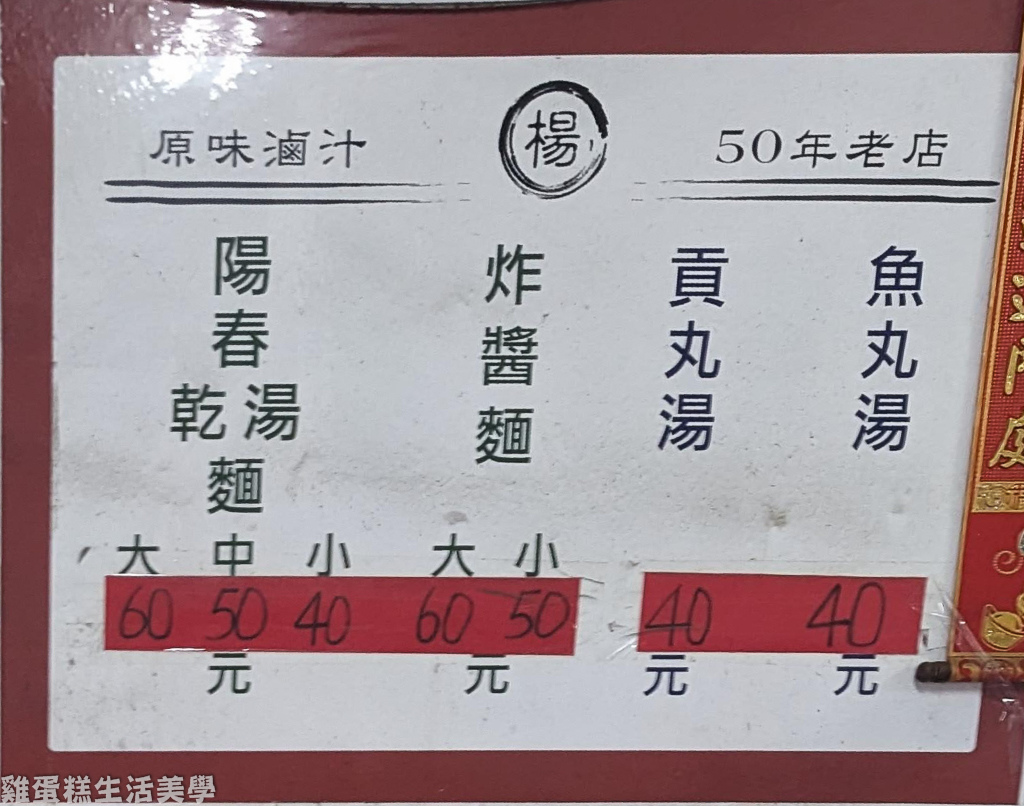 原味滷汁
楊
50年老店
陽春乾湯麵
大 中 小
60 50 40
元
炸醬麵
大 小
60 50
元
貢丸湯
40
元
魚丸湯
40
元
雞蛋糕生活美學